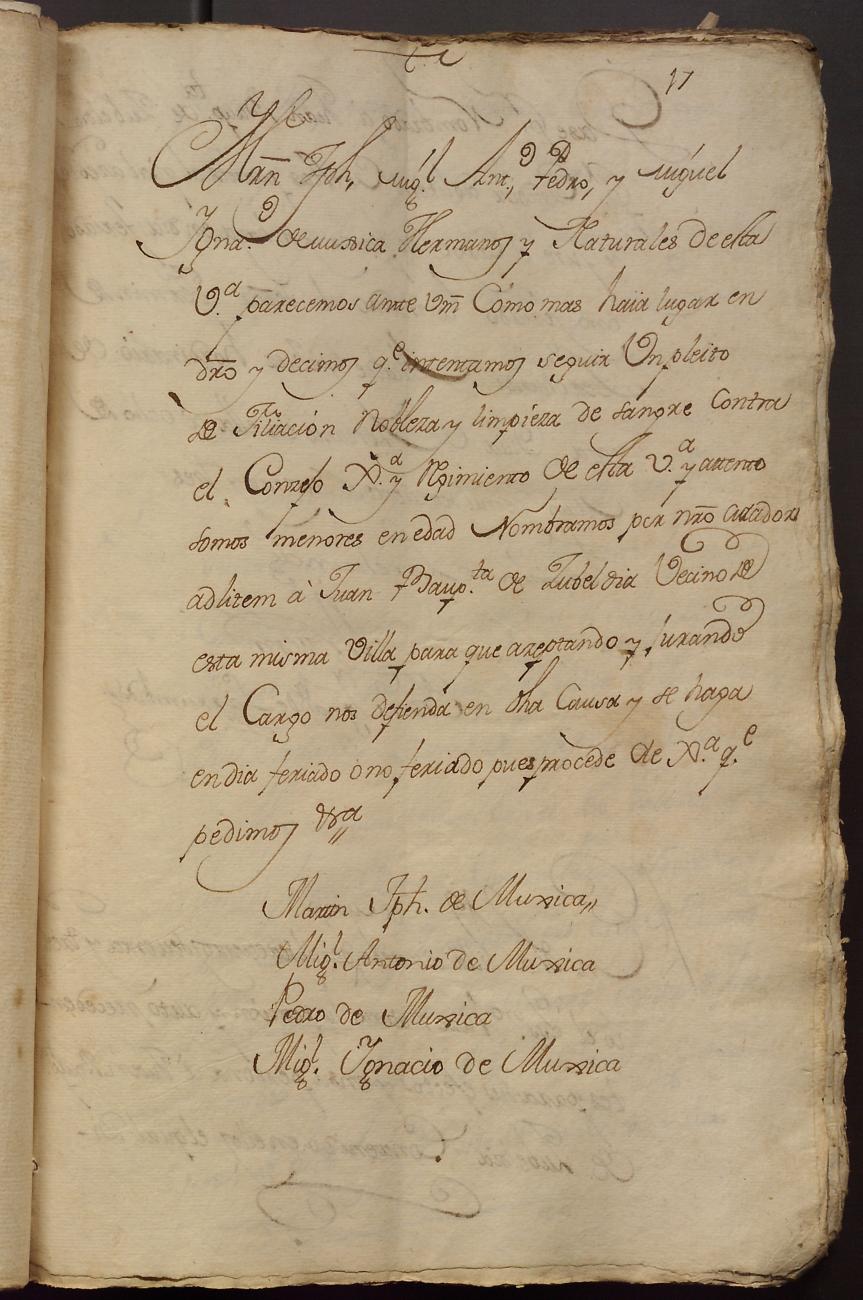 17
Mrn Jph, Migl Antto, Pedro, y Miguel
Ygnao de mussica Hermanos y Naturales de esta
V.a parecemos ante Vm Cómo mas haia lugar en
dro y decimos q.e intentamos seguir Un pleito
de Filiación Nobleza y limpieza de sangre Contra
el Conzejo X.a y Rgimiento de esta V.a y attento
somos menores en edad Nombramos por nro curador
adlitem à Juan Baup.ta de Zubeldia Vecino de
esta misma Villa para que azeptando y Jurando
el Cargo nos defienda en dha Causa y se haga
en dia feriado ó no feriado pues procede de X.a q.e
pedimos &a
Martin Jph. de Mussica
Migl. Antonio de Mussica
Pedro de Mussica
Migl. Ygnacio de Mussica